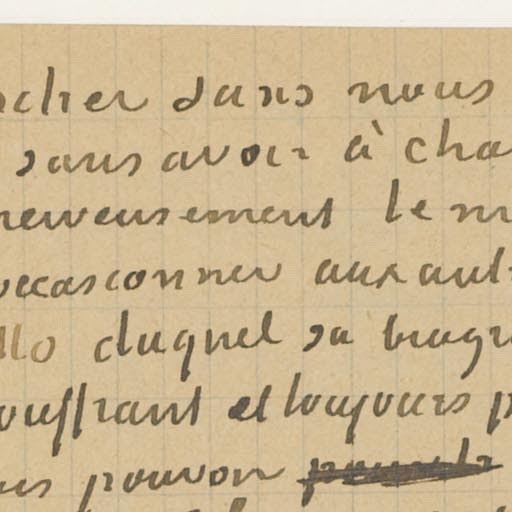 cher sans nous
sans avoir à cha
nerveusement le m
occasionner aux aut
duquel sa biogr
souffrant et toujours p
us pouvoir